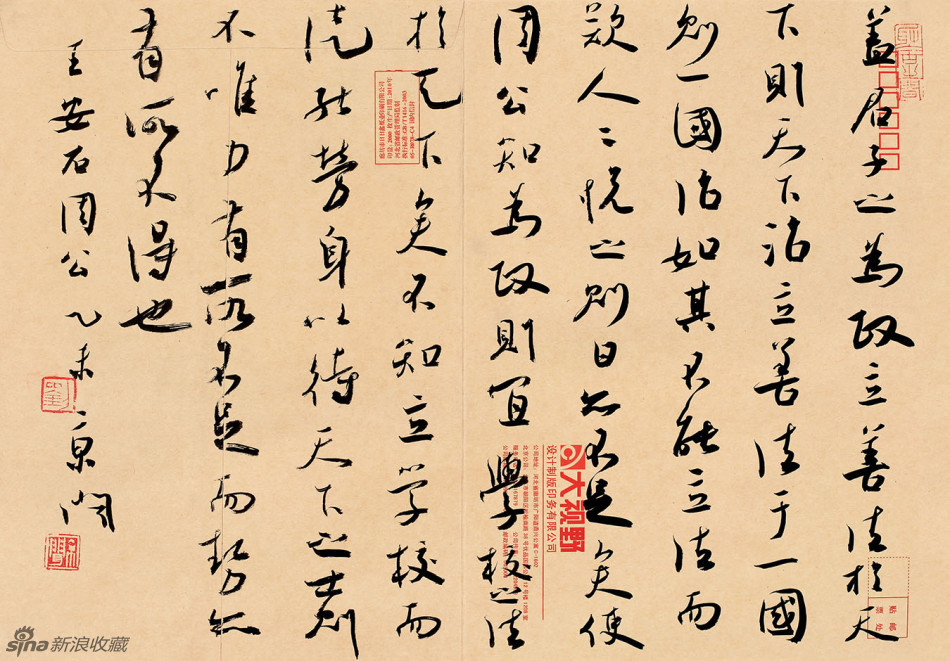 蓋君子之為政立善法於天
下則天下治立善法于一國
則一國治如其不能立法而
欲人々悅之則日亦不足矣使
周公知為政則宜學校之法
於天下矣不知立學校而
徒能勞身以待天下之士則
不唯力有所不足而勢亦
有所不得也
王安石周公乙未京聞
大视野
设计制版印务有限公司
贴邮
票处
sina新浪收藏